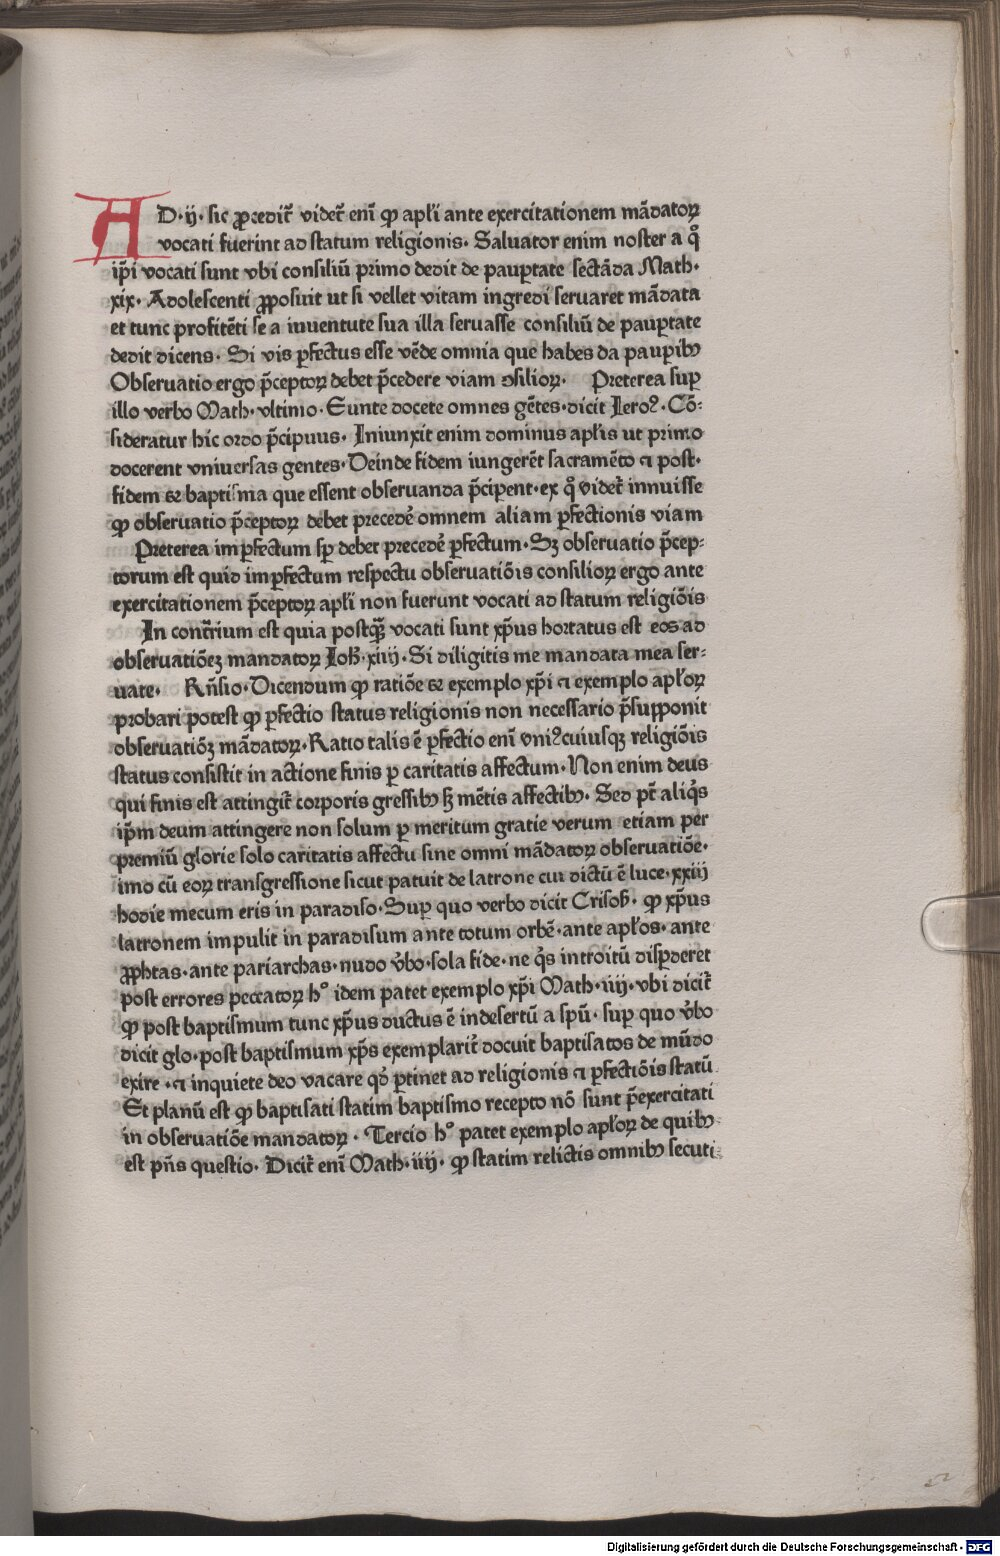 AD·ij·sic ꝓcedit̃ videt̃ enĩ ꝙ apl̃i ante exercitationem mãdatoꝝ
vocati fuerint ad statum religionis· Saluator enim noster a q̊
ip̃i vocati sunt vbi consiliũ primo dedit de paup̱tate sectãda Math·
xix· Adolescenti ꝓposuit ut si vellet vitam ingredi seruaret mãdata
et tunc profitẽti se a iuuentute sua illa seruasse consiliũ de paup̱tate
dedit dicens· Si vis ꝑfectus esse vẽde omnia que habes da paup̱ibꝰ
Obseruatio ergo p̃ceptoꝝ debet p̃cedere viam ꝯsilioꝝ· Preterea suꝑ
illo verbo Math·vltimo·Eunte docete omnes gẽtes·dicit Ieroꝰ·Cõ:
sideratur hic ordo p̃cipuus· Iniunxit enim dominus apl̃is ut primo
docerent vniuersas gentes·Deinde fidem iungerẽt sacramẽto ⁊ post·
fidem et baptisma que essent obseruanda p̃cipent·ex q̊ videt̃ innuisse
ꝙ obseruatio p̃ceptoꝝ debet precedẽ omnem aliam ꝑfectionis viam
Preterea imꝑfectum sꝑ debet precedẽ ꝑfectum·Sꝫ obseruatio p̃cep:
torum est quid imꝑfectum respectu obseruatiõis consilioꝝ ergo ante
exercitationem p̃ceptoꝝ apl̃i non fuerunt vocati ad statum religiõis
In contrãrium est quia postqꝫ̃ vocati sunt xp̃us hortatus est eos ad
obseruatiõeꝫ mandatoꝝ Ioh̃·xiiij·Si diligitis me mandata mea ser:
uate· Rñsio·Dicendum ꝙ ratiõe et exemplo xp̃i ⁊ exemplo apl̃oꝝ
probari potest ꝙ ꝑfectio status religionis non necessario p̃supponit
obseruatiõꝫ mãdatoꝝ·Ratio talis ẽ ꝑfectio enĩ vniꝰcuiusqꝫ religiõis
status consistit in actione finis ꝑ caritatis affectum·Non enim deus
qui finis est attingit̃ corporis gressibꝰ sꝫ mẽtis affectibꝰ· Sed pt̃ aliq̃s
ip̃m deum attingere non solum ꝑ meritum gratie verum etiam per
premiũ glorie solo caritatis affectu sine omni mãdatoꝝ obseruatiõe·
imo cũ eoꝝ transgressione sicut patuit de latrone cui dictũ ẽ luce·xxiij
hodie mecum eris in paradiso·Suꝑ quo verbo dicit Crisoh̃· ꝙ xp̃us
latronem impulit in paradisum ante totum orbẽ·ante apl̃os·ante
ꝓphtas·ante pariarchas·nudo v̉bo·sola fide·ne q̃s introitũ disꝑderet
post errores peccatoꝝ h° idem patet exemplo xp̃i Math·iiij·vbi dicit̃
ꝙ post baptismum tunc xp̃us ductus ẽ indesertũ a spũ· suꝑ quo v̉bo
dicit glo·post baptismum xp̃s exemplarit̃ docuit baptisatos de mũdo
exire ·⁊ inquiete deo vacare qd̃ ꝑtinet ad religionis ⁊ ꝑfectiõis statũ
Et planũ est ꝙ baptisati statim baptismo recepto nõ sunt p̃exercitati
in obseruatiõe mandatoꝝ · Tercio h° patet exemplo apl̃oꝝ de quibꝰ
est pñs questio· Dicit̃ enĩ Math·iiij· ꝙ statim relictis omnibꝰ secuti
Digitalisierung gefördert durch die Deutsche Forschungsgemeinschaft - DFG